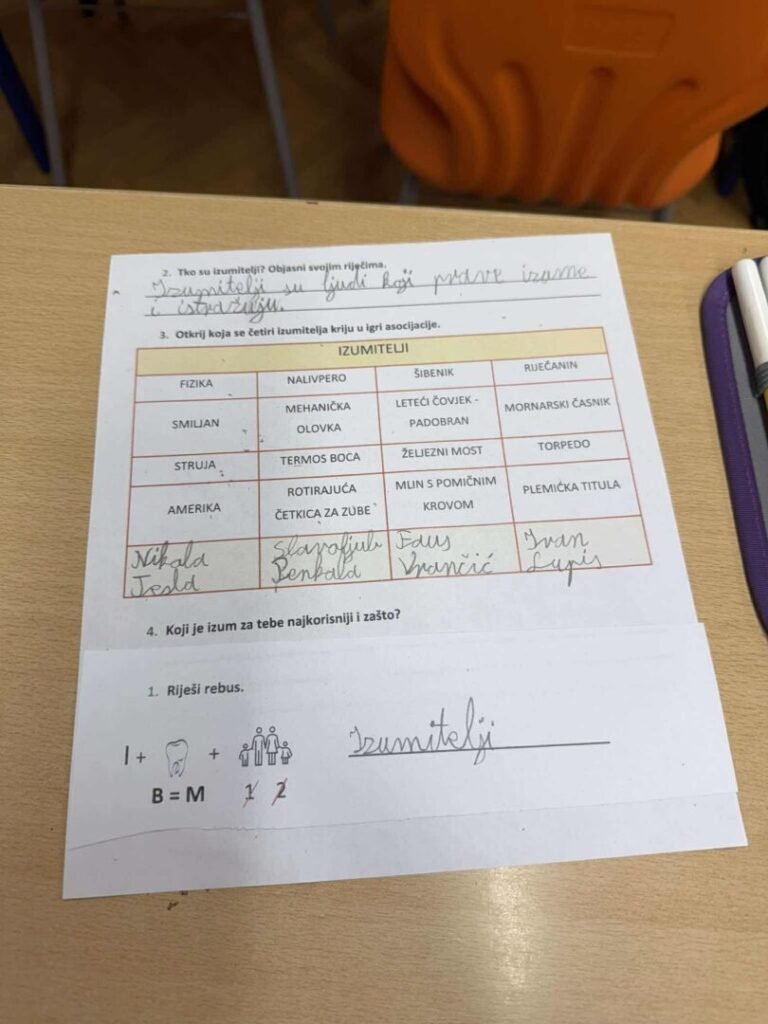 2. Tko su izumitelji? Objasni svojim riječima.
Izumitelji su ljudi koji prave izume
i istražuju.
3. Otkrij koja se četiri izumitelja kriju u igri asocijacije.
IZUMITELJI
FIZIKA NALIVPERO ŠIBENIK RIJEČANIN
SMILJAN MEHANIČKA OLOVKA LETEĆI ČOVJEK - PADOBRAN MORNARSKI ČASNIK
STRUJA TERMOS BOCA ŽELJEZNI MOST TORPEDO
AMERIKA ROTIRAJUĆA ČETKICA ZA ZUBE MLIN S POMIČNIM KROVOM PLEMIĆKA TITULA
Nikola Slavoljub Faus Ivan
Tesla Penkala Vrančić Lupis
4. Koji je izum za tebe najkorisniji i zašto?
1. Riješi rebus.
I + + Izumitelji
B = M 1 2